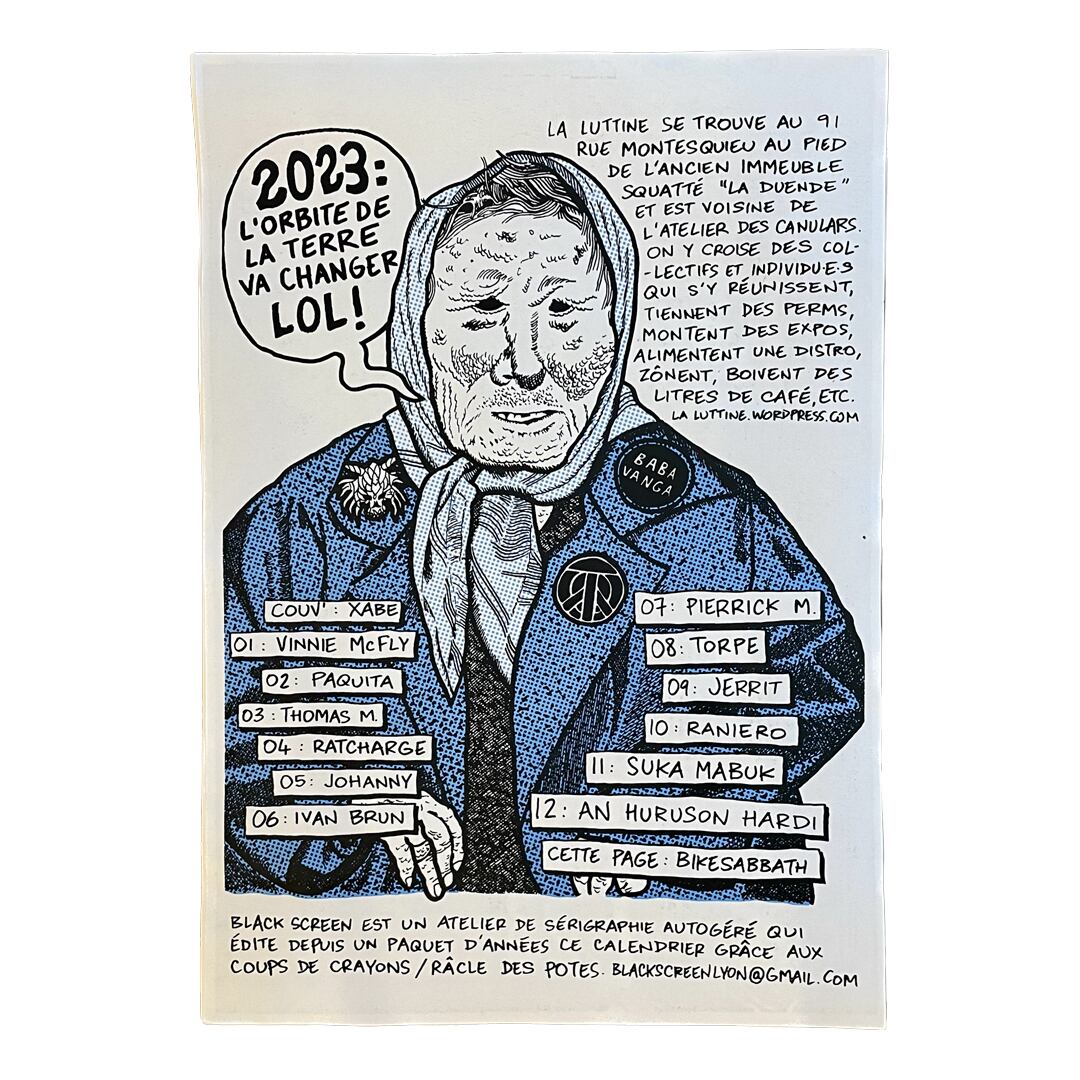 2023:
L'ORBITE DE
LA TERRE
VA CHANGER
LOL!
LA LUTTINE SE TROUVE AU 91
RUE MONTESQUIEU AU PIED
DE L'ANCIEN IMMEUBLE
SQUATTÉ "LA DUENDE"
ET EST VOISINE DE
L'ATELIER DES CANULARS.
ON Y CROISE DES COL-
-LECTIFS ET INDIVIDU·E·S
QUI S'Y RÉUNISSENT,
TIENNENT DES PERMS,
MONTENT DES EXPOS,
ALIMENTENT UNE DISTRO,
ZÔNENT, BOIVENT DES
LITRES DE CAFÉ, ETC.
LA LUTTINE.WORDPRESS.COM
BABA
VANGA
COUV' : XABE
01 : VINNIE McFLY
02 : PAQUITA
03 : THOMAS M.
04 : RATCHARGE
05 : JOHANNY
06 : IVAN BRUN
07 : PIERRICK M.
08 : TORPE
09 : JERRIT
10 : RANIERO
11 : SUKA MABUK
12 : AN HURUSON HARDI
CETTE PAGE : BIKESABBATH
BLACK SCREEN EST UN ATELIER DE SÉRIGRAPHIE AUTOGÉRÉ QUI
ÉDITE DEPUIS UN PAQUET D'ANNÉES CE CALENDRIER GRÂCE AUX
COUPS DE CRAYONS / RÂCLE DES POTES. BLACKSCREENLYON@GMAIL.COM